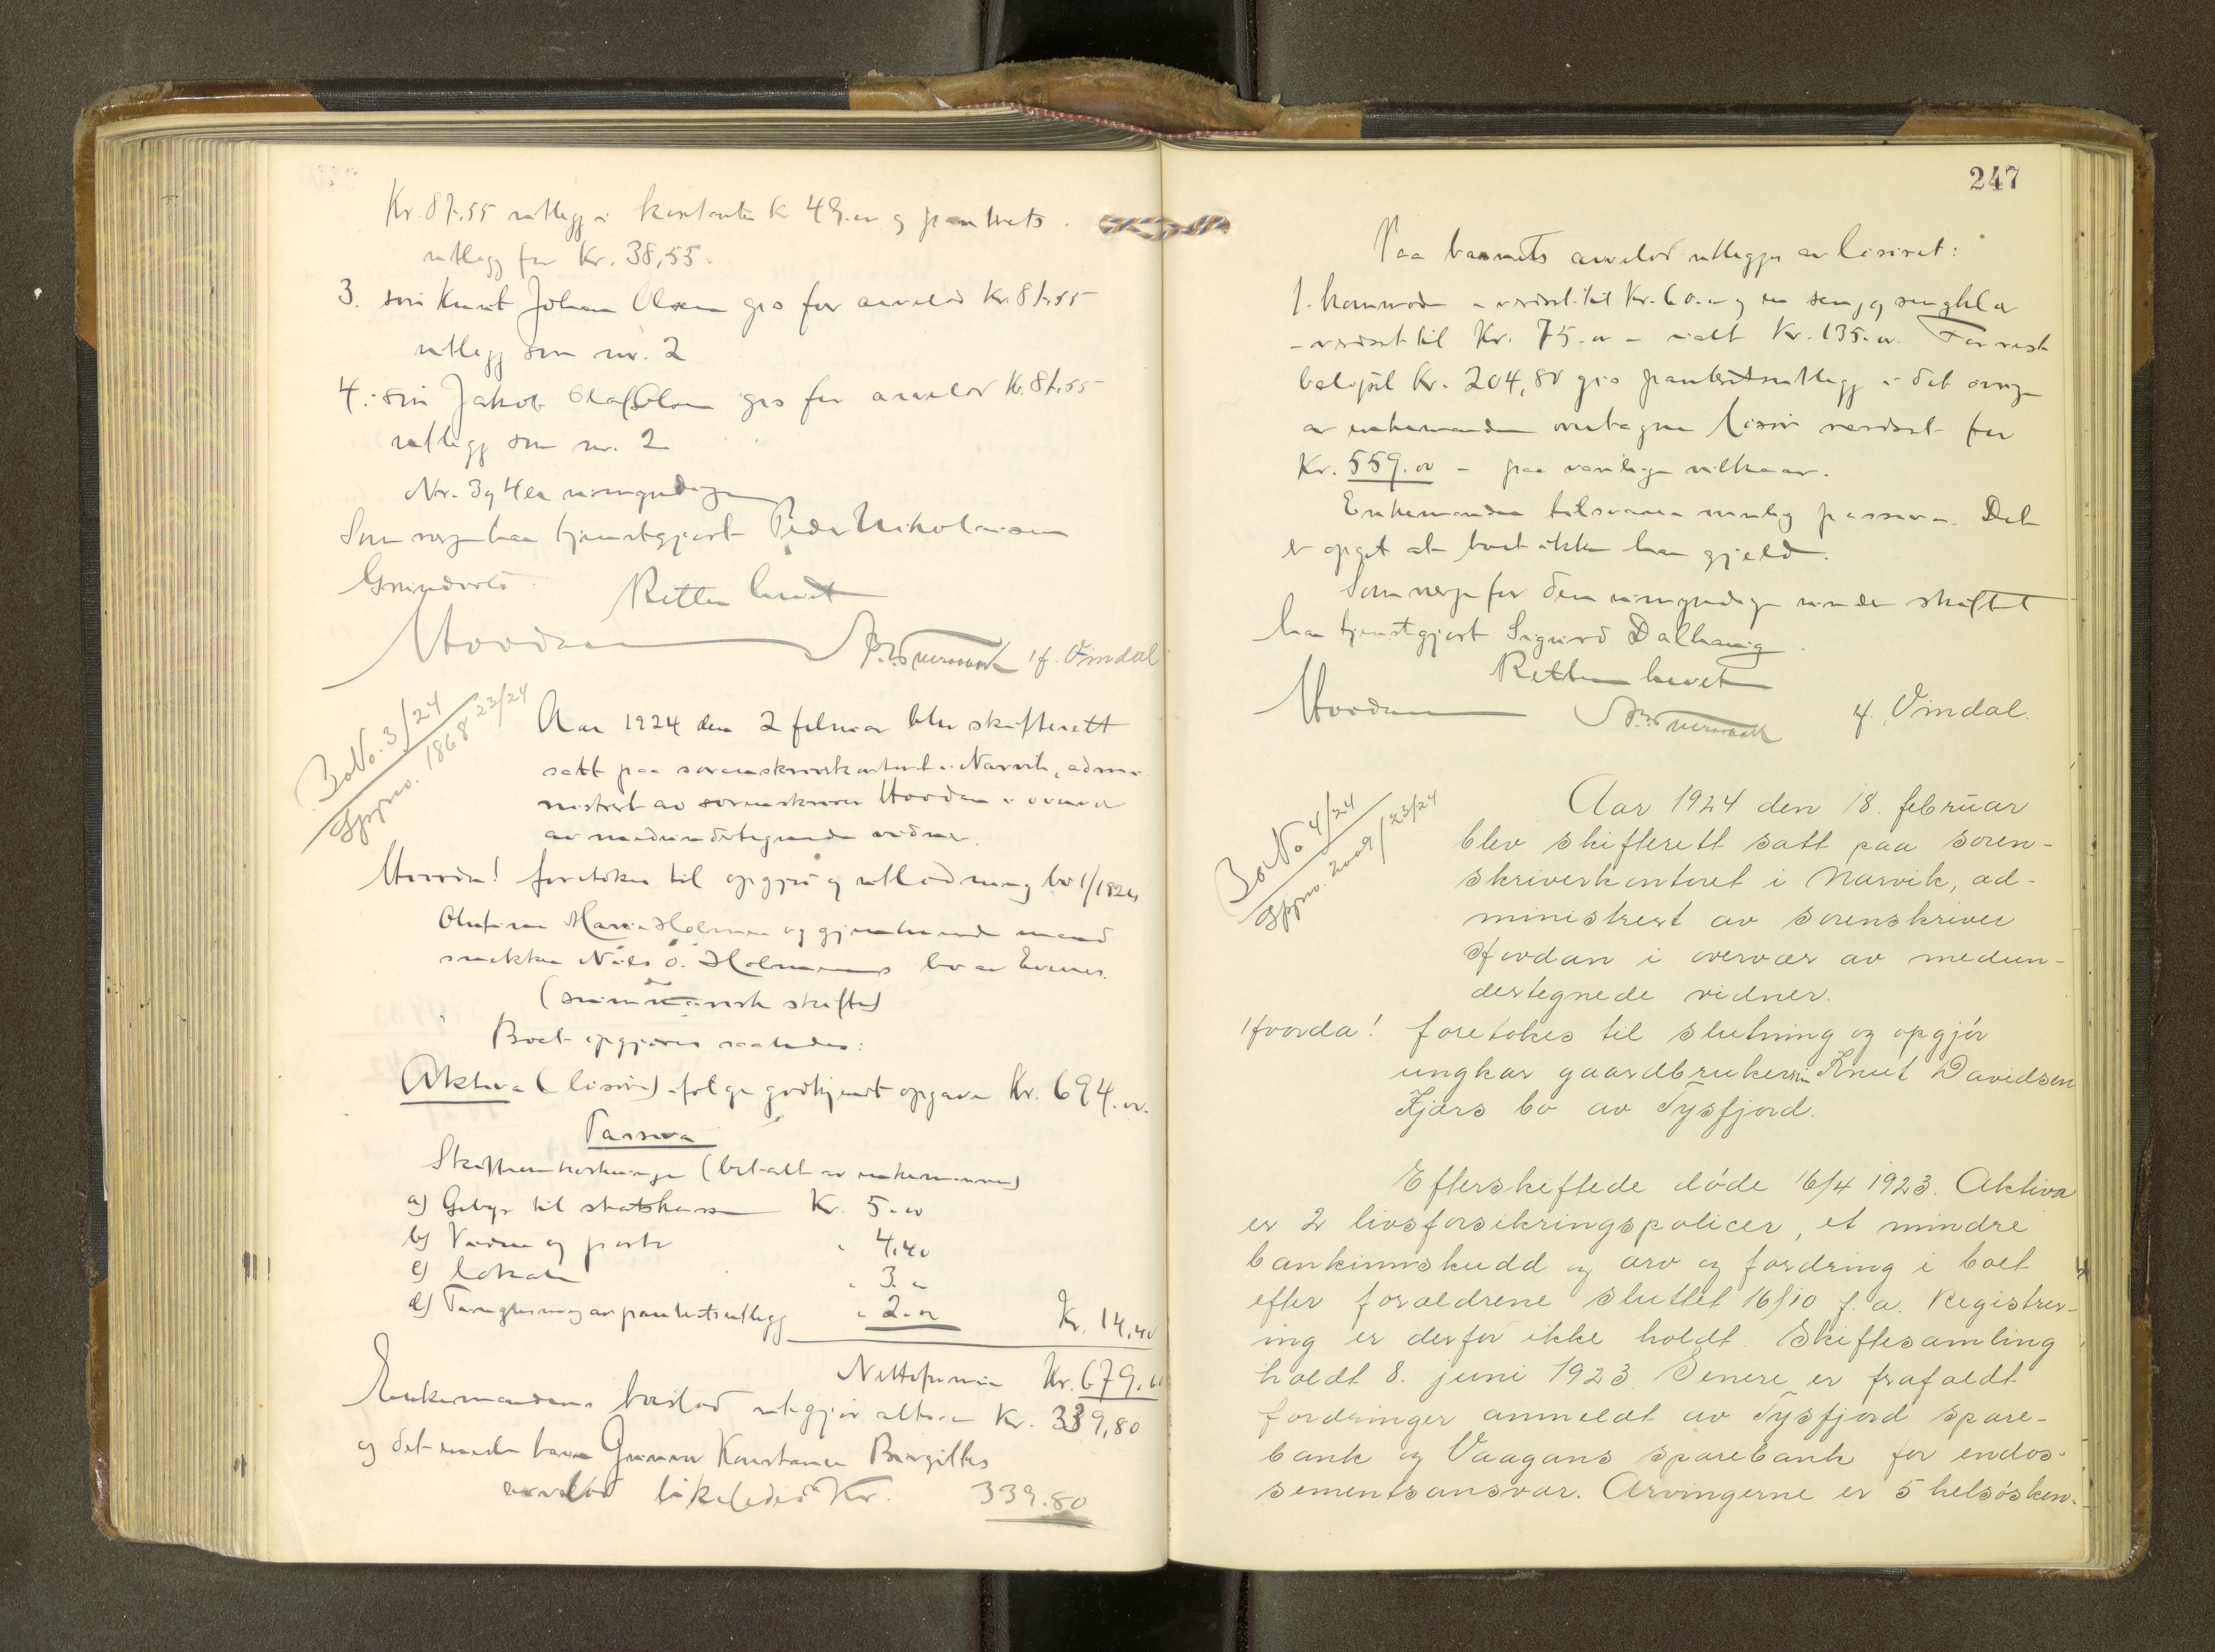 Kr. 87.55 utlegg i kontanter kr 49.00 og panterets
utlegg for Kr. 38,55.
3. søn Knut Johan Olsen gis for arvelod Kr. 87.55
utlegg som nr. 2
4. søn Jakob Olaf Olsen gis for arvelod Kr. 87.55
utlegg som nr. 2
Nr. 3 og 4 er umyndige
Som verge har tjenstgjort Peder Nikolaisen
Grindvold.
Retten hevet
Hvordan
f. Vindal
Bo No. 3/24
Jppno. 1868 23/24
Aar 1924 den 2 februar blev skifterett
satt paa sorenskriverkontoret i Narvik, admi-
nistrert av sorenskriver Hvordan i overvær
av medundertegnede vidner.
Hvorda! foretokes til opgjør og utlodning bo 1/1924
Olufine Marie Holmen og gjenlevende mand
snekker Nils O. Holmens bo av Evenes.
(summarisk skifte)
Boet opgjøres saaledes:
Aktiva (løsøre) ifølge godkjendt opgave Kr. 694.00.
Passiva
Skifteomkostninger (betalt av enkemannen)
a) Gebyr til statskassen Kr. 5.00
b) Vidner og porto " 4.40
c) lokale " 3.00
d) Tinglysning av panteretsutlegg " 2.00 Kr. 14,40
Nettoformue Kr. 679.60
Enkemandens boslod utgjør altsaa Kr. 339,80
og det eneste barn Gunvor Konstance Birgittes
arvelod likeledes Kr. 339.80
247
Paa barnets arvelod utlegges av løsøret:
1 kommode - verdsat til Kr. 60.00 og en seng og sengklær
- verdsat til Kr. 75.00 - ialt Kr. 135.00. For rest
beløpet Kr. 204,80 gis panteretsutlegg i det øvrige
av enkemanden overtagne løsøre verdsat for
Kr. 559.00 - paa vanlige vilkaar.
Enkemanden tilsvarer mulig passiva. Det
er opgit at boet ikke har gjeld.
Som verge for den umyndige under skiftet
har tjenstgjort Sigurd Dalhaug.
Retten hevet
Hvordan
f. Vindal.
Bo No 4/24
Jppno. 2009/23/24
Aar 1924 den 18. februar
blev skifterett satt paa soren-
skriverkontoret i Narvik, ad-
ministrert av sorenskriver
Hvordan i overvær av medun-
dertegnede vidner.
Hvorda! foretokes til slutning og opgjør
ungkar gaardbruker Knut Davidsen
Kjærs bo av Tysfjord.
Efterskiftede døde 16/4 1923. Aktiva
er 2 livsforsikringspolicer, et mindre
bankinnskudd og arv og fordring i boet
efter forældrene sluttet 16/10 f.a. Registrer-
ing er derfor ikke holdt. Skiftesamling
holdt 8. juni 1923. Senere er frafaldt
fordringer anmeldt av Tysfjord spare-
bank og Vaagans sparebank for endos-
sementsansvar. Arvingerne er 5 helsøsken.